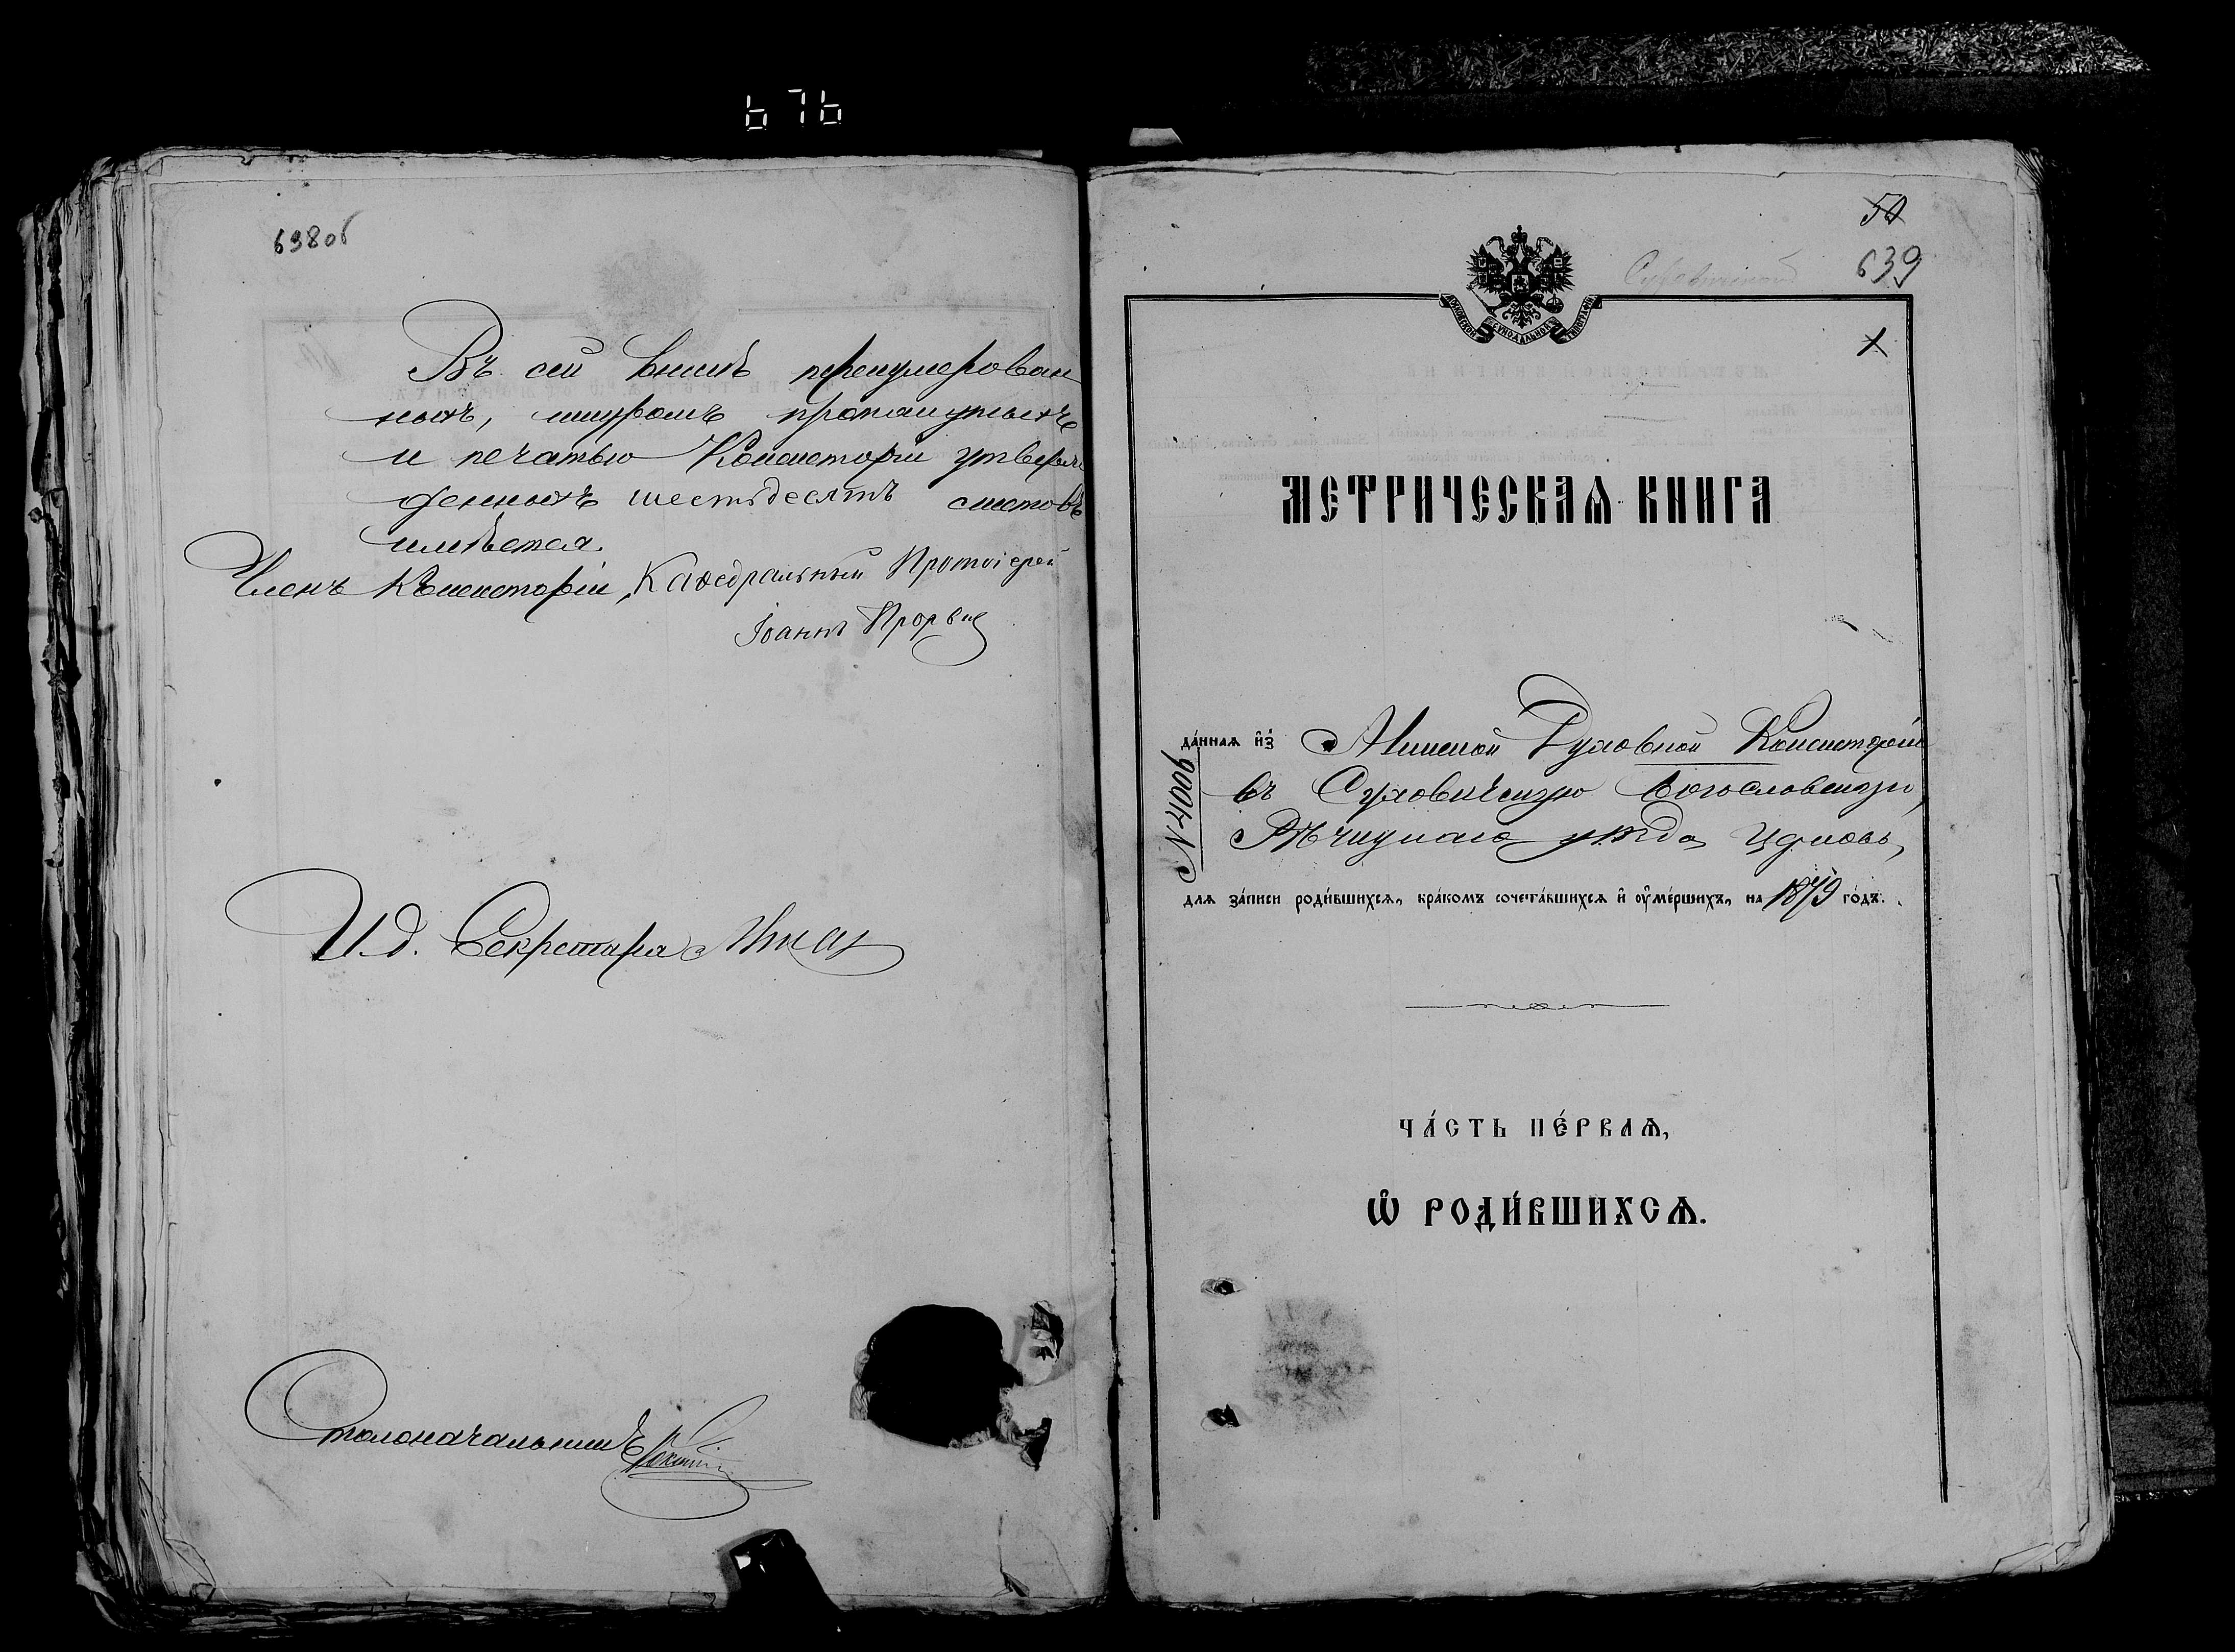 676
638об
Въ сей книгѣ перенумерован
ныхъ, шнуромъ протянутыхъ
и печатью Консисторіи утверж
денныхъ шестьдесятъ листовъ
имѣется.
Членъ Консисторіи, Каѳедральный Протоіерей
Іоаннъ
И. д. Секретаря
Столоначальникъ
50
639
1
МОСКОВСКОЙ СѴНОДАЛЬНОЙ ТИПОГРАФІИ
МЕТРИЧЕСКАѦ КНИГА
да́ннаѧ и҆зъ Минской Духовной Консисторіи
въ Суховичскую Богословскую,
Рѣчицкаго уѣзда церковь,
№ 9004
для за́писи роди́вшихсѧ, бра́комъ сочета́вшихсѧ и҆ ᲂу҆ме́ршихъ, на 1879 го́дъ.
ЧА́СТЬ ПЕ́РВАѦ,
Ѡ҆ РОДИ́ВШИХСѦ.